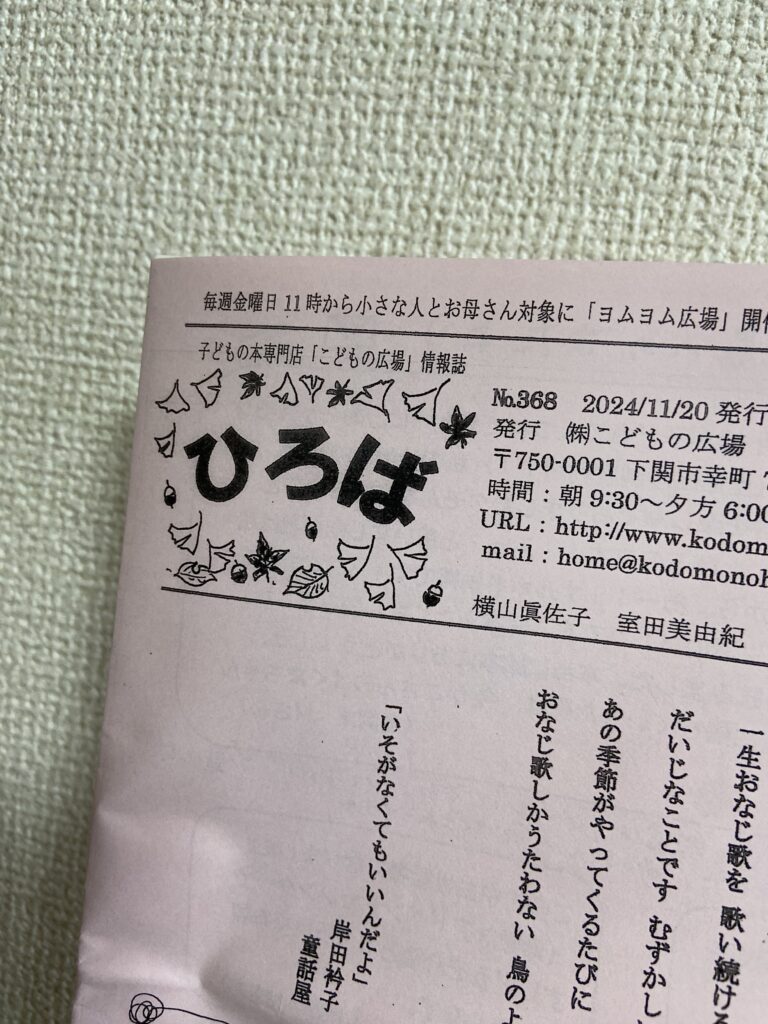 毎週金曜日11時から小さな人とお母さん対象に「ヨムヨム広場」開催
子どもの本専門店「こどもの広場」情報誌
ひろば
№368 2024/11/20発行
発行 ㈱こどもの広場
〒750-0001 下関市幸町
時間:朝9:30~夕方6:00
URL:http://www.kodom
mail:home@kodomonoh
横山眞佐子 室田美由紀
一生おなじ歌を 歌い続ける
だいじなことです むずかし
あの季節がやってくるたびに
おなじ歌しかうたわない 鳥のよ
「いそがなくてもいいんだよ」
岸田衿子
童話屋